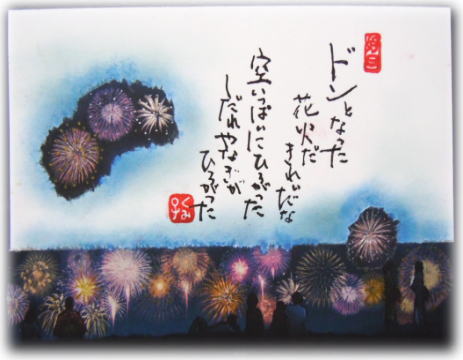 ドンとなった
花火だ
きれいだな
空いっぱいにひろがった
しだれやなぎが
ひろがった